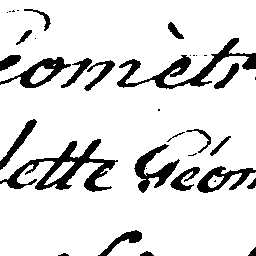 éomètr
lette Géom